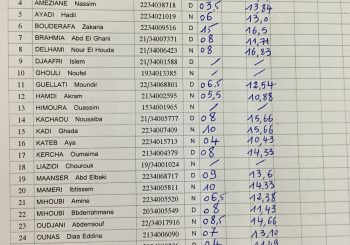 4 AMEZIANE Nassim 2234038718 D 03,5 13,84
5 AYADI Hadil 2234021019 N 06 13,0
6 BOUDERAFA Zakaria 2234009516 D 15 16,5
7 BRAHMIA Abd El Ghani 21/34007371 D 08 11,71
8 DELHAMI Nour El Houda 21/34006423 N 08 16,83
9 DJAAFRI Islem 21/34001588 D / /
10 GHOULI Noufel 1934013385 N / /
11 GUELLATI Moundir 22/34068801 D 06,5 12,54
12 HAMDI Akram 2134002595 N 05,5 10,88
13 HIMOURA Ouassim 1534001965 N / /
14 KACHAOU Noussaiba 21/34005777 D 08 15,66
15 KADI Ghada 2234007409 N 10 15,66
16 KATEB Aya 2234015713 N 04 10,43
17 KERCHA Oumaima 2234005379 D 08 14,33
18 LIAZIDI Chourouk 19/34001024 N / /
19 MAANSER Abd Elbaki 2234068717 D 09 13,6
20 MAMERI Ibtissem 2234005811 N 10 14,33
21 MIHOUBI Amine 2234005520 N 06,5 12,38
22 MIHOUBI Bbderrahmane 2034005549 D 08 11,43
23 OUDJANI Abderraouf 22/34017916 N 08,5 14,66
24 OUNAS Diaa Eddine 2134006090 N 07 13,10
N 04